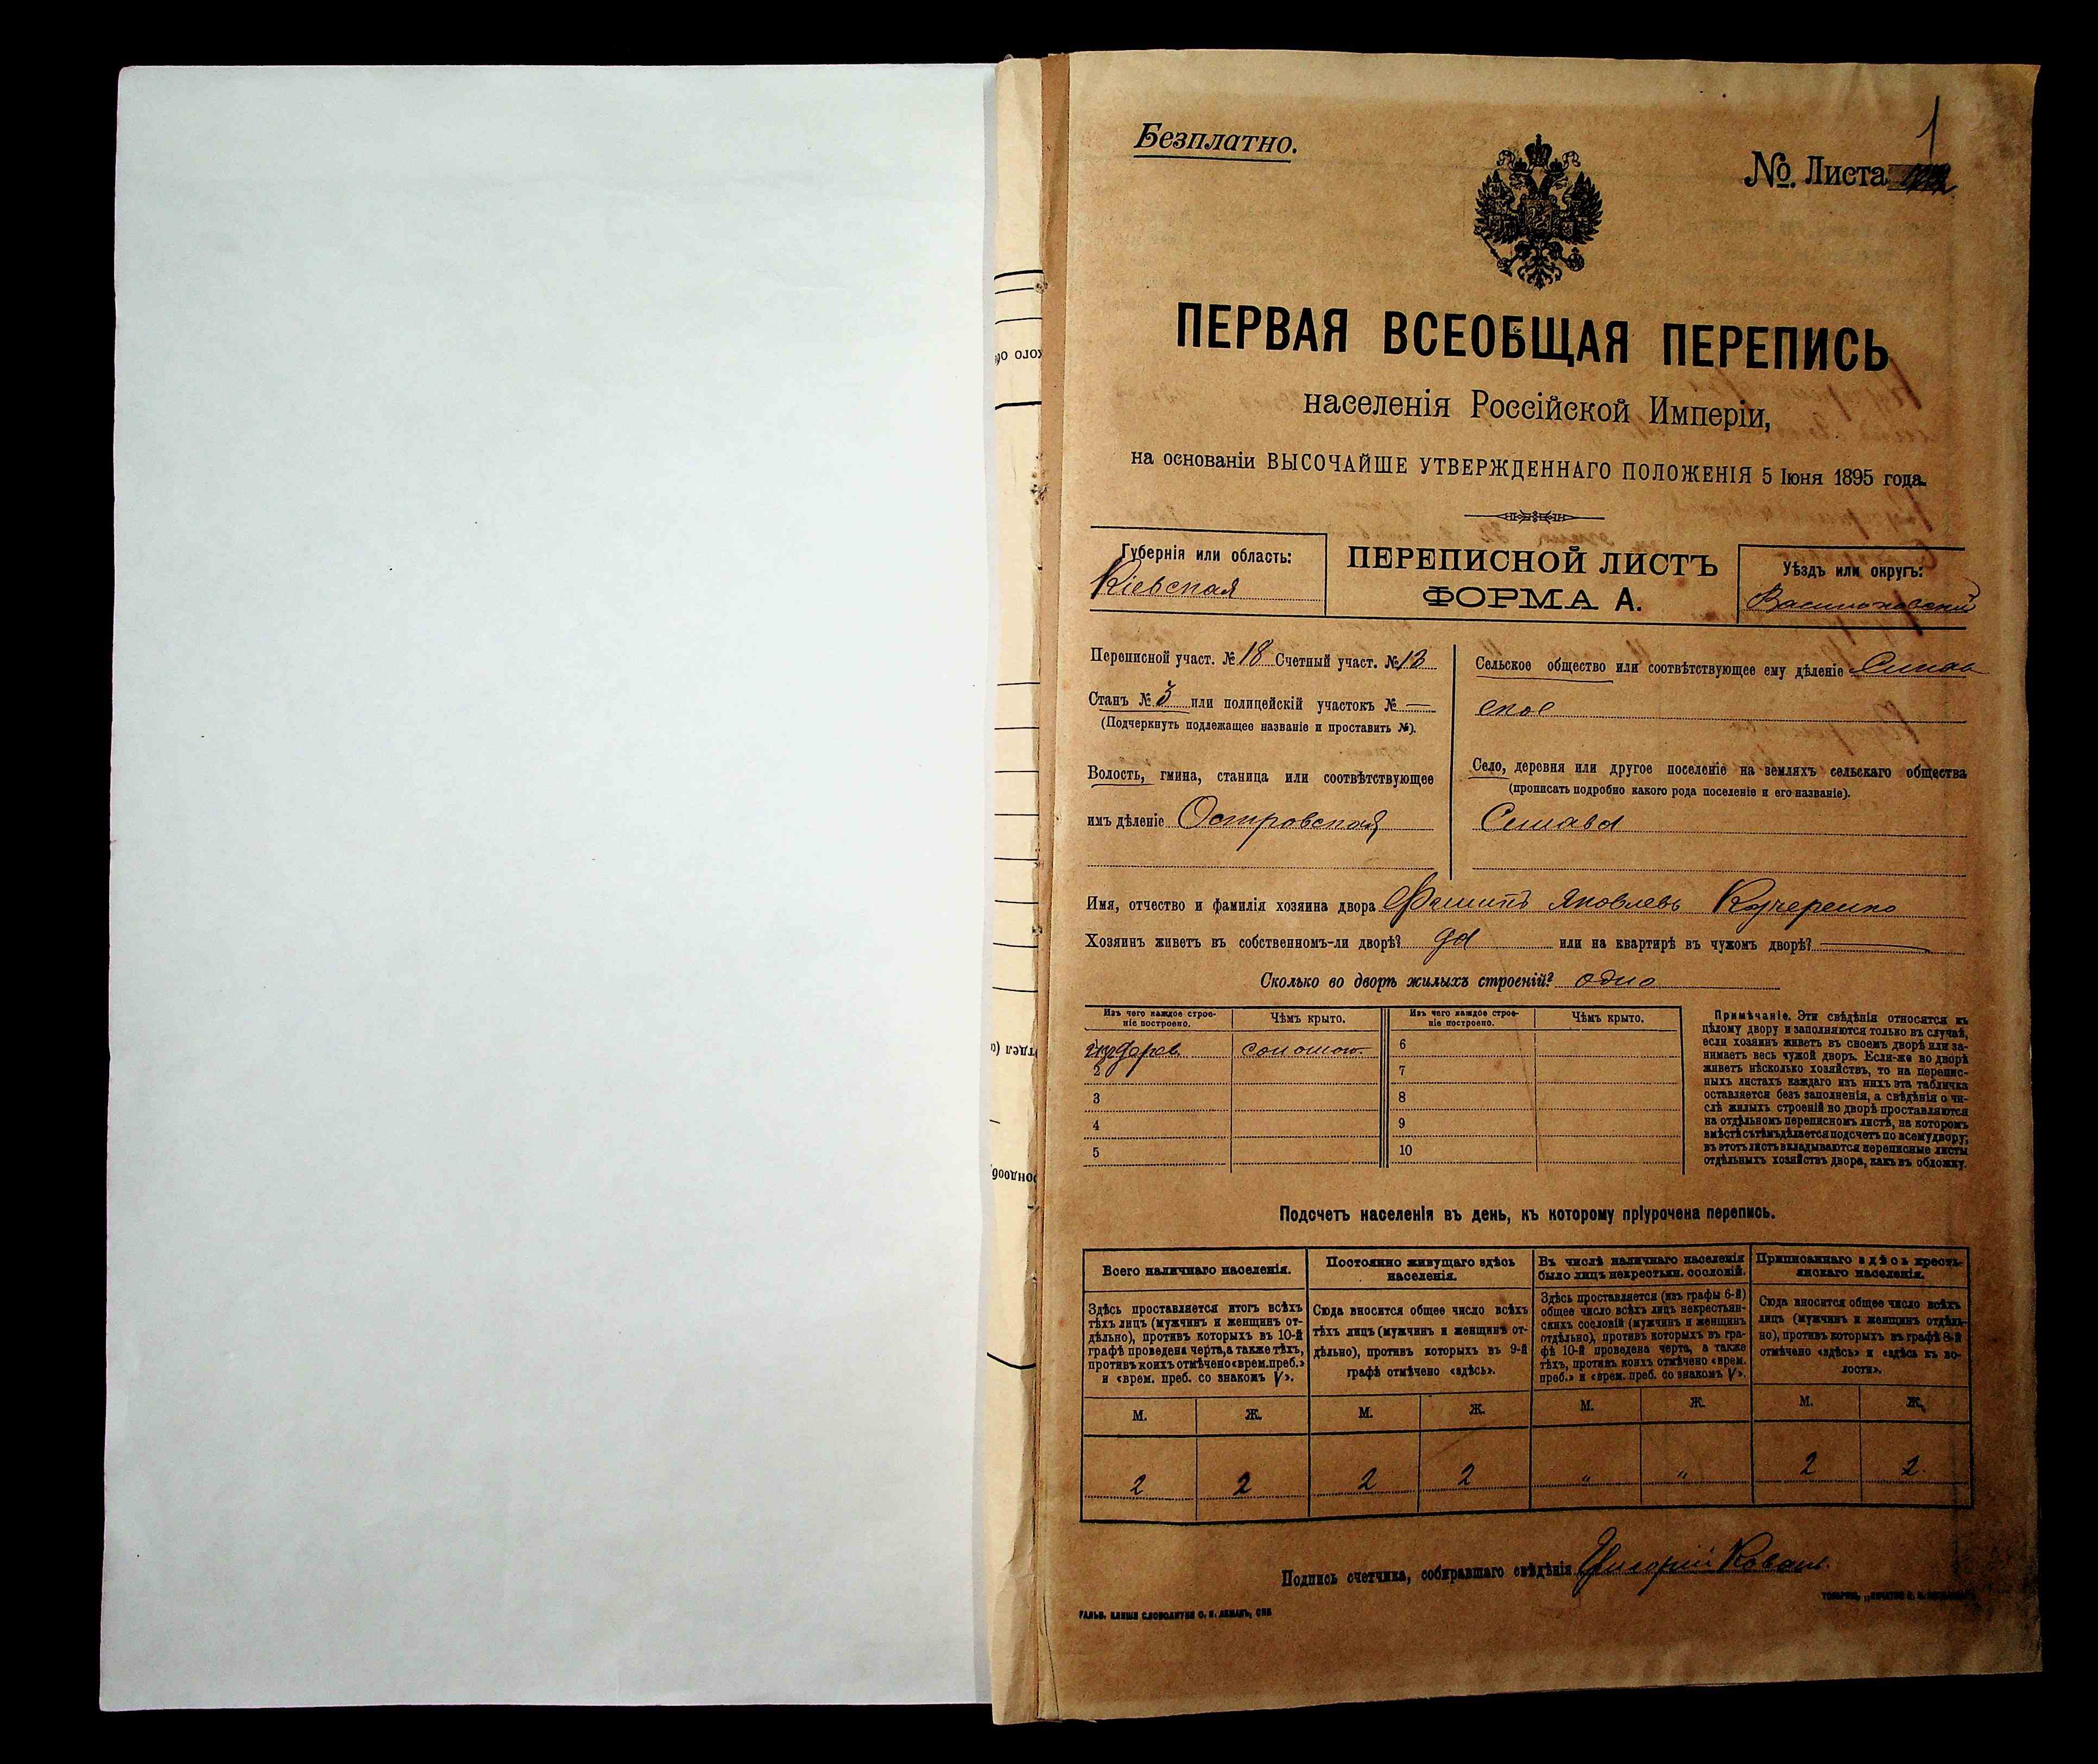 Безплатно.
№. Листа 1
ПЕРВАЯ ВСЕОБЩАЯ ПЕРЕПИСЬ
населенія Россійской Имперіи,
на основаніи ВЫСОЧАЙШЕ УТВЕРЖДЕННАГО ПОЛОЖЕНІЯ 5 Іюня 1895 года.
Губернія или область:
Кіевская
ПЕРЕПИСНОЙ ЛИСТЪ
ФОРМА А.
Уѣздъ или округъ:
Васильковскій
Переписной участ. № 18 Счетный участ. № 13
Станъ № 3 или полицейскій участокъ № —
(Подчеркнуть подлежащее названіе и проставить №).
Волость, гмина, станица или соотвѣтствующее
имъ дѣленіе Островская
Сельское общество или соотвѣтствующее ему дѣленіе Синяв
ское
Село, деревня или другое поселеніе на земляхъ сельскаго общества
(прописать подробно какого рода поселеніе и его названіе).
Синява
Имя, отчество и фамилія хозяина двора Филиппъ Яковлевъ Кучеренко
Хозяинъ живетъ въ собственномъ-ли дворѣ? да или на квартирѣ въ чужомъ дворѣ? —
Сколько во дворѣ жилыхъ строеній? одно
Изъ чего каждое строе-
ніе построено.
Чѣмъ крыто.
Изъ чего каждое строе-
ніе построено.
Чѣмъ крыто.
дерев. соломою.
2
3
4
5
6
7
8
9
10
Примѣчаніе. Эти свѣдѣнія относятся къ
цѣлому двору и заполняются только въ случаѣ,
если хозяинъ живетъ въ своемъ дворѣ или за-
нимаетъ весь чужой дворъ. Если-же во дворѣ
живетъ нѣсколько хозяйствъ, то на перепис-
ныхъ листахъ каждаго изъ нихъ эта табличка
оставляется безъ заполненія, а свѣдѣнія о чи-
слѣ жилыхъ строеній во дворѣ проставляются
на отдѣльномъ переписномъ листѣ, на которомъ
вмѣстѣ съ тѣмъ дѣлается подсчетъ по всему двору;
въ этотъ листъ вкладываются переписные листы
отдѣльныхъ хозяйствъ двора, какъ въ обложку.
Подсчетъ населенія въ день, къ которому пріурочена перепись.
Всего наличнаго населенія.
Постоянно живущаго здѣсь
населенія.
Въ числѣ наличнаго населенія
было лицъ некрестьян. сословій.
Приписаннаго здѣсь кресть-
янскаго населенія.
Здѣсь проставляется итогъ всѣхъ
тѣхъ лицъ (мужчинъ и женщинъ от-
дѣльно), противъ которыхъ въ 10-й
графѣ проведена черта, а также тѣхъ,
противъ коихъ отмѣчено «врем. преб.»
и «врем. преб. со знакомъ V».
Сюда вносится общее число всѣхъ
тѣхъ лицъ (мужчинъ и женщинъ от-
дѣльно), противъ которыхъ въ 9-й
графѣ отмѣчено «здѣсь».
Здѣсь проставляется (изъ графы 6-й)
общее число всѣхъ лицъ некрестьян-
скихъ сословій (мужчинъ и женщинъ
отдѣльно), противъ которыхъ въ гра-
фѣ 10-й проведена черта, а также
тѣхъ, противъ коихъ отмѣчено «врем.
преб.» и «врем. преб. со знакомъ V».
Сюда вносится общее число всѣхъ
лицъ (мужчинъ и женщинъ отдѣль-
но), противъ которыхъ въ графѣ 8-й
отмѣчено «здѣсь» и «здѣсь въ во-
лости».
М. Ж. М. Ж. М. Ж. М. Ж.
2 2 2 2 " " 2 2
Подпись счетчика, собиравшаго свѣдѣнія Григорій Коваль.
ГАЛЬВ. КЛИШЕ СЛОВОЛИТНИ О. И. ЛЕМАНЪ, СПБ